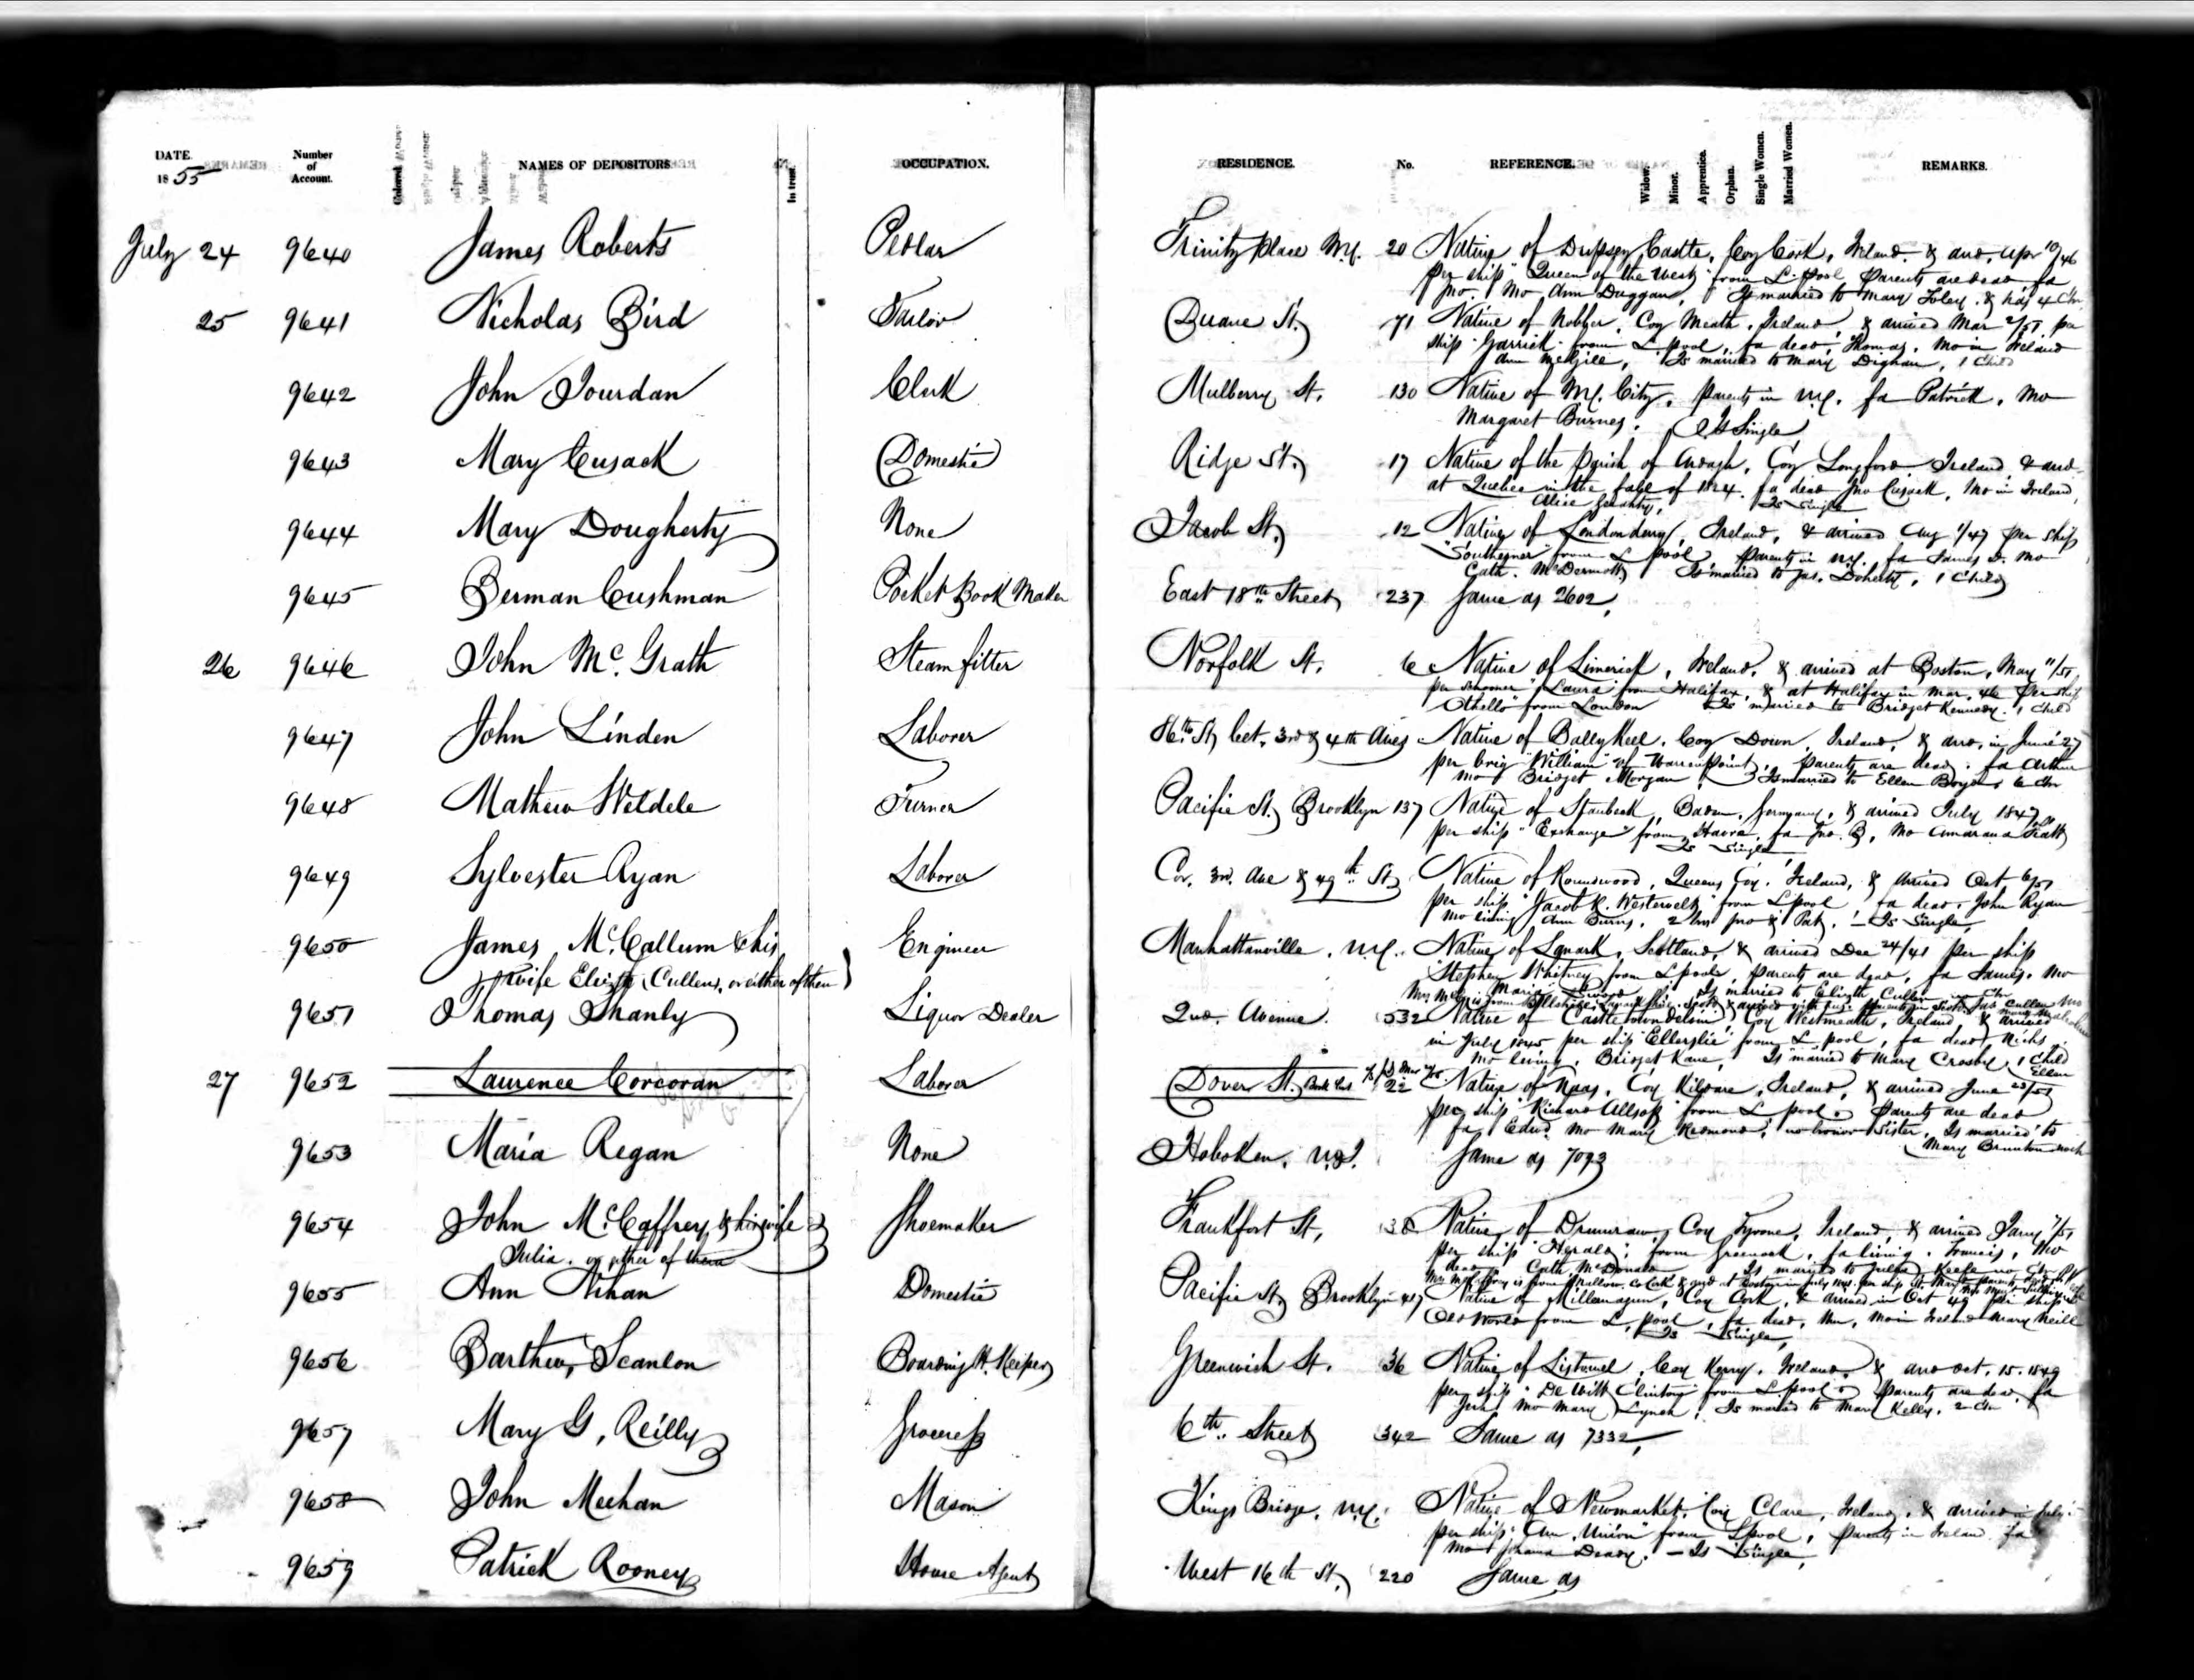 DATE. 1855
Number of Account.
NAMES OF DEPOSITORS
In trust.
OCCUPATION.
RESIDENCE.
No.
REFERENCE.
Widow.
Minor.
Apprentice.
Orphan.
Single Women.
Married Women.
REMARKS.
July 24 9640 James Roberts Pedlar Trinity Place N.Y. 20 Native of Dripsey Castle, Coy Cork, Ireland & arrd. Apr 10/46
per ship "Queen of the West" from L.pool Parents are dead fa
Jno. Mo Ann Duggan, Is married to Mary Foley & has 4 Chn
25 9641 Nicholas Bird Tailor Duane St. 71 Native of Nobber, Coy Meath, Ireland, & arrived Mar 2/51 per
ship "Garrick" from L.pool, fa dead, Thomas, Mo in Ireland
Ann McGill, Is married to Mary Dignan, 1 Child
9642 John Jourdan Clerk Mulberry St. 130 Native of N.Y. City, Parents in N.Y. fa Patrick, Mo
Margaret Burnes. Is Single
9643 Mary Cusack Domestic Ridge St. 17 Native of the Parish of Ardagh, Coy Longford Ireland & arrd
at Quebec in the fall of fa dead Jno Cusack, Mo in Ireland,
Alice Is Single
9644 Mary Dougherty None Jacob St. 12 Native of Londonderry, Ireland, & arrived Aug 1/47 per ship
"Southerner" from L pool, Parents in N.Y. fa James D. Mo
Cath. McDermott Is married to Jas. Doherty, 1 Child
9645 Berman Cushman Pocket Book Maker East 18th Street 237 Same as 2602,
26 9646 John Mc.Grath Steam fitter Norfolk St. 6 Native of Limerick, Ireland, & arrived at Boston, May 11/51
per schooner "Laura" from Halifax, & at Halifax in Mar. 46 per ship
Othello from London Is married to Bridget Kennedy. 1 Child
9647 John Linden Laborer 86th St bet. 3rd & 4th Aves Native of BallyKeel, Coy Down, Ireland, & arrd. in June 27
per brig "William" Warrenpoint, Parents are dead. fa Arthur
Mo Bridget Morgan Is married to Ellen Boyd 6 Chn
9648 Mathew Weldele Turner Pacific St. Brooklyn 137 Native of Baden, Germany, & arrived July 1847
per ship "Exchange" from Havre, fa Jno. B, Mo
Is Single
9649 Sylvester Ryan Laborer Cor. 3rd. Ave & 49th St. Native of Roundwood, Queens Coy. Ireland, & arrived Oct
per ship "Jacob A. Westervelt" from L pool, fa dead, John Ryan
Mo living Ann Burns, 2 bros Jno & Pat, - Is Single,
9650 James Mc.Callum & his Engineer Manhattanville, N.Y. Native of Lanark, Scotland, & arrived Dec 24/41 per ship
wife Elizth (Cullen), or either of them
"Stephen Whitney from L pool, Parents are dead, fa James, Mo
Maria Is married to Elizth Cullen
9651 Thomas Shanly Liquor Dealer 2nd. Avenue 532 Native of Castletowndelvin, Coy Westmeath, Ireland, & arrived
in July 1845 per ship "Ellerslie" from L pool, fa dead, Nichs.
Mo living, Bridget Kane, Is married to Mary Crosby 1 Child
Ellen
27 9652 Laurence Corcoran Laborer Dover St. 22 Native of Naas, Coy Kildare, Ireland, & arrived June 23/51
per ship "Richard Allsop" from L pool, Parents are dead
fa Edwd. Mo Mary Redmond, no bro nor Sister, Is married to
Mary Brunton
9653 Maria Regan None Hoboken. N.J. Same as 7093
9654 John Mc.Caffrey & his wife Shoemaker Frankfort St. 38 Native of Drumraw, Coy Tyrone, Ireland, & arrived Jany 7/51
Julia, or either of them
per ship "Herald", from Greenock, fa living. Francis, Mo
dead Cath McDonald Is married to Julia Keefe no Chn
9655 Ann Nihan Domestic Pacific St. Brooklyn Native of Coy Cork, & arrived in Oct 49 per ship
Old World from L. pool, fa dead, Mo in Ireland Mary Neill
Is Single,
9656 Barthw. Scanlon Boarding H. Keeper Greenwich St. 36 Native of Listowel, Coy Kerry, Ireland, & arrd Oct. 15. 1849
per ship "De Witt Clinton" from L.pool, Parents are dead, fa
Mo Mary Lynch, Is married to Mary Kelly, 2 Chn
9657 Mary G, Reilly Groceress 6th. Street 342 Same as 7332,
9658 John Meehan Mason Kings Bridge, N.Y. Native of Newmarket, Coy Clare, Ireland, & arrived in July
per ship "Am. Union" from L pool, Parents in Ireland fa
Mo Johana Deady. - Is Single,
9659 Patrick Rooney House Agent West 16th St. 220 Same as